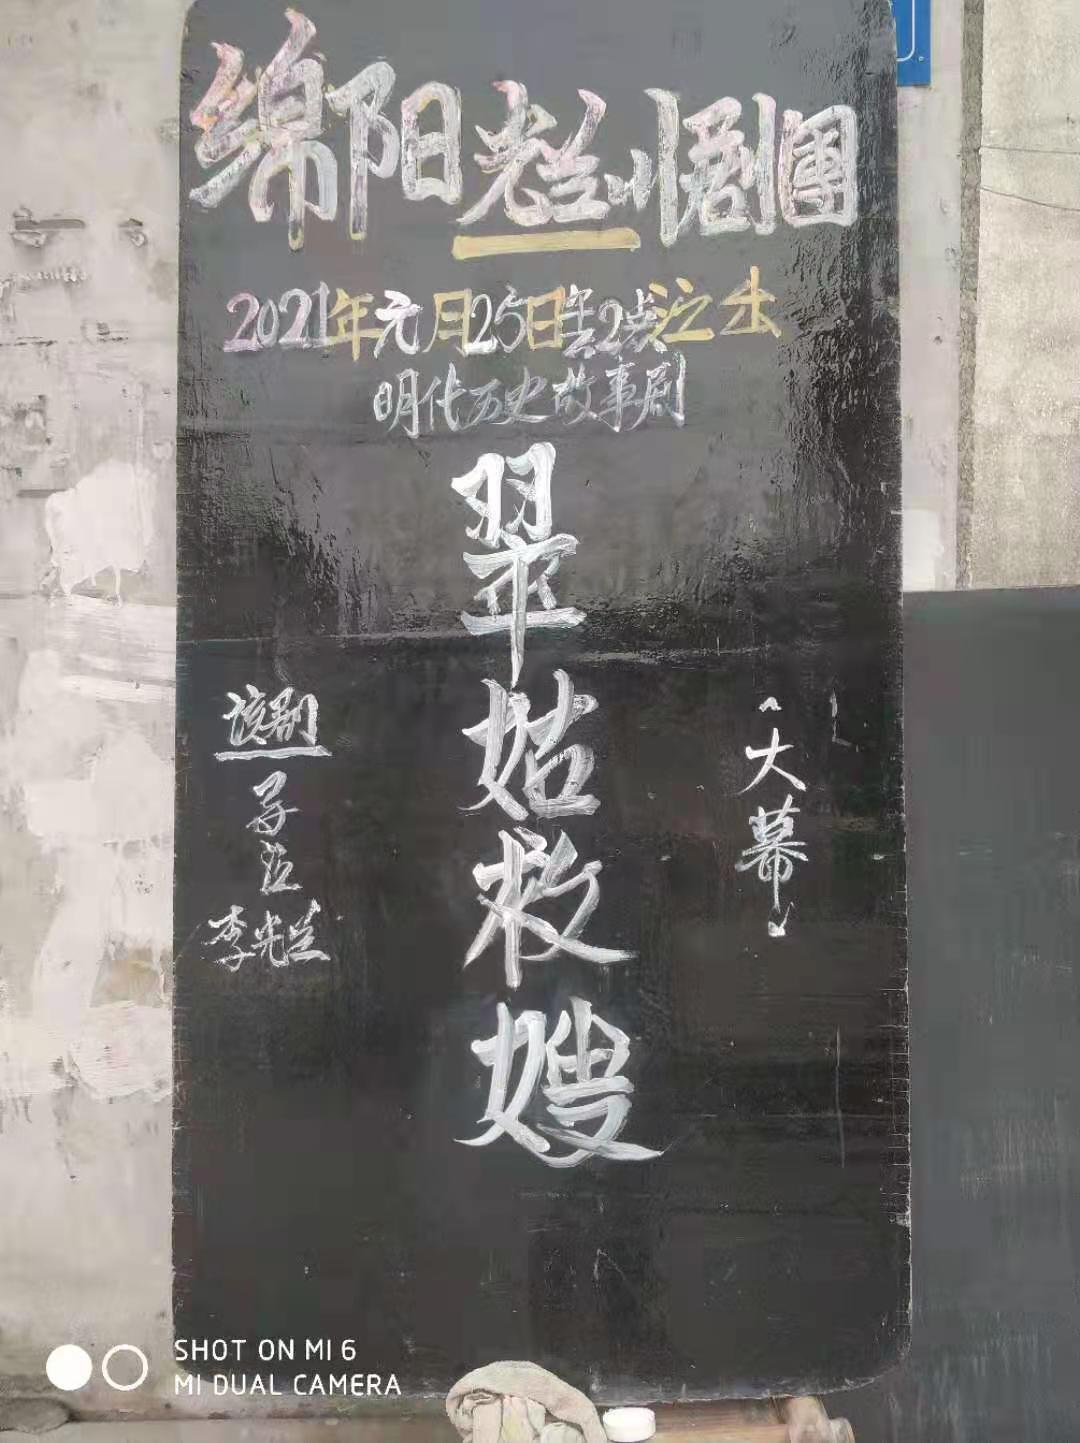 绵阳光兰川剧團
2021年元月25日 2点演出
明代历史故事剧
翠姑救嫂
大幕
该剧
李光兰
SHOT ON MI 6
MI DUAL CAMERA